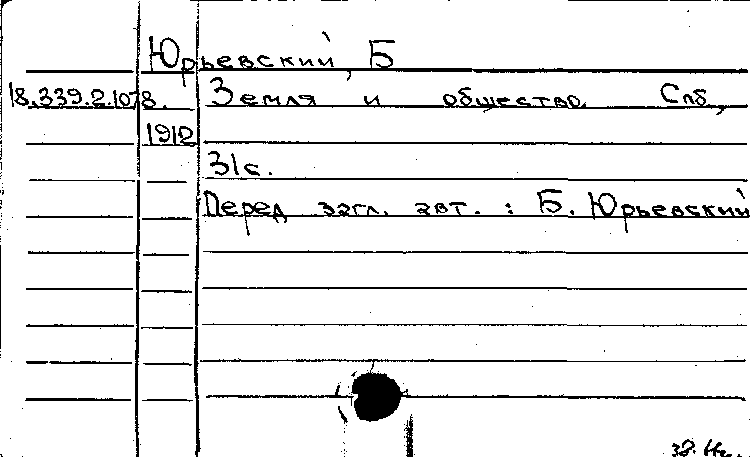 Юрьевский, Б
18.339.2.1078. Земля и общество. Спб,
1912
31с.
Перед загл. авт. : Б. Юрьевский